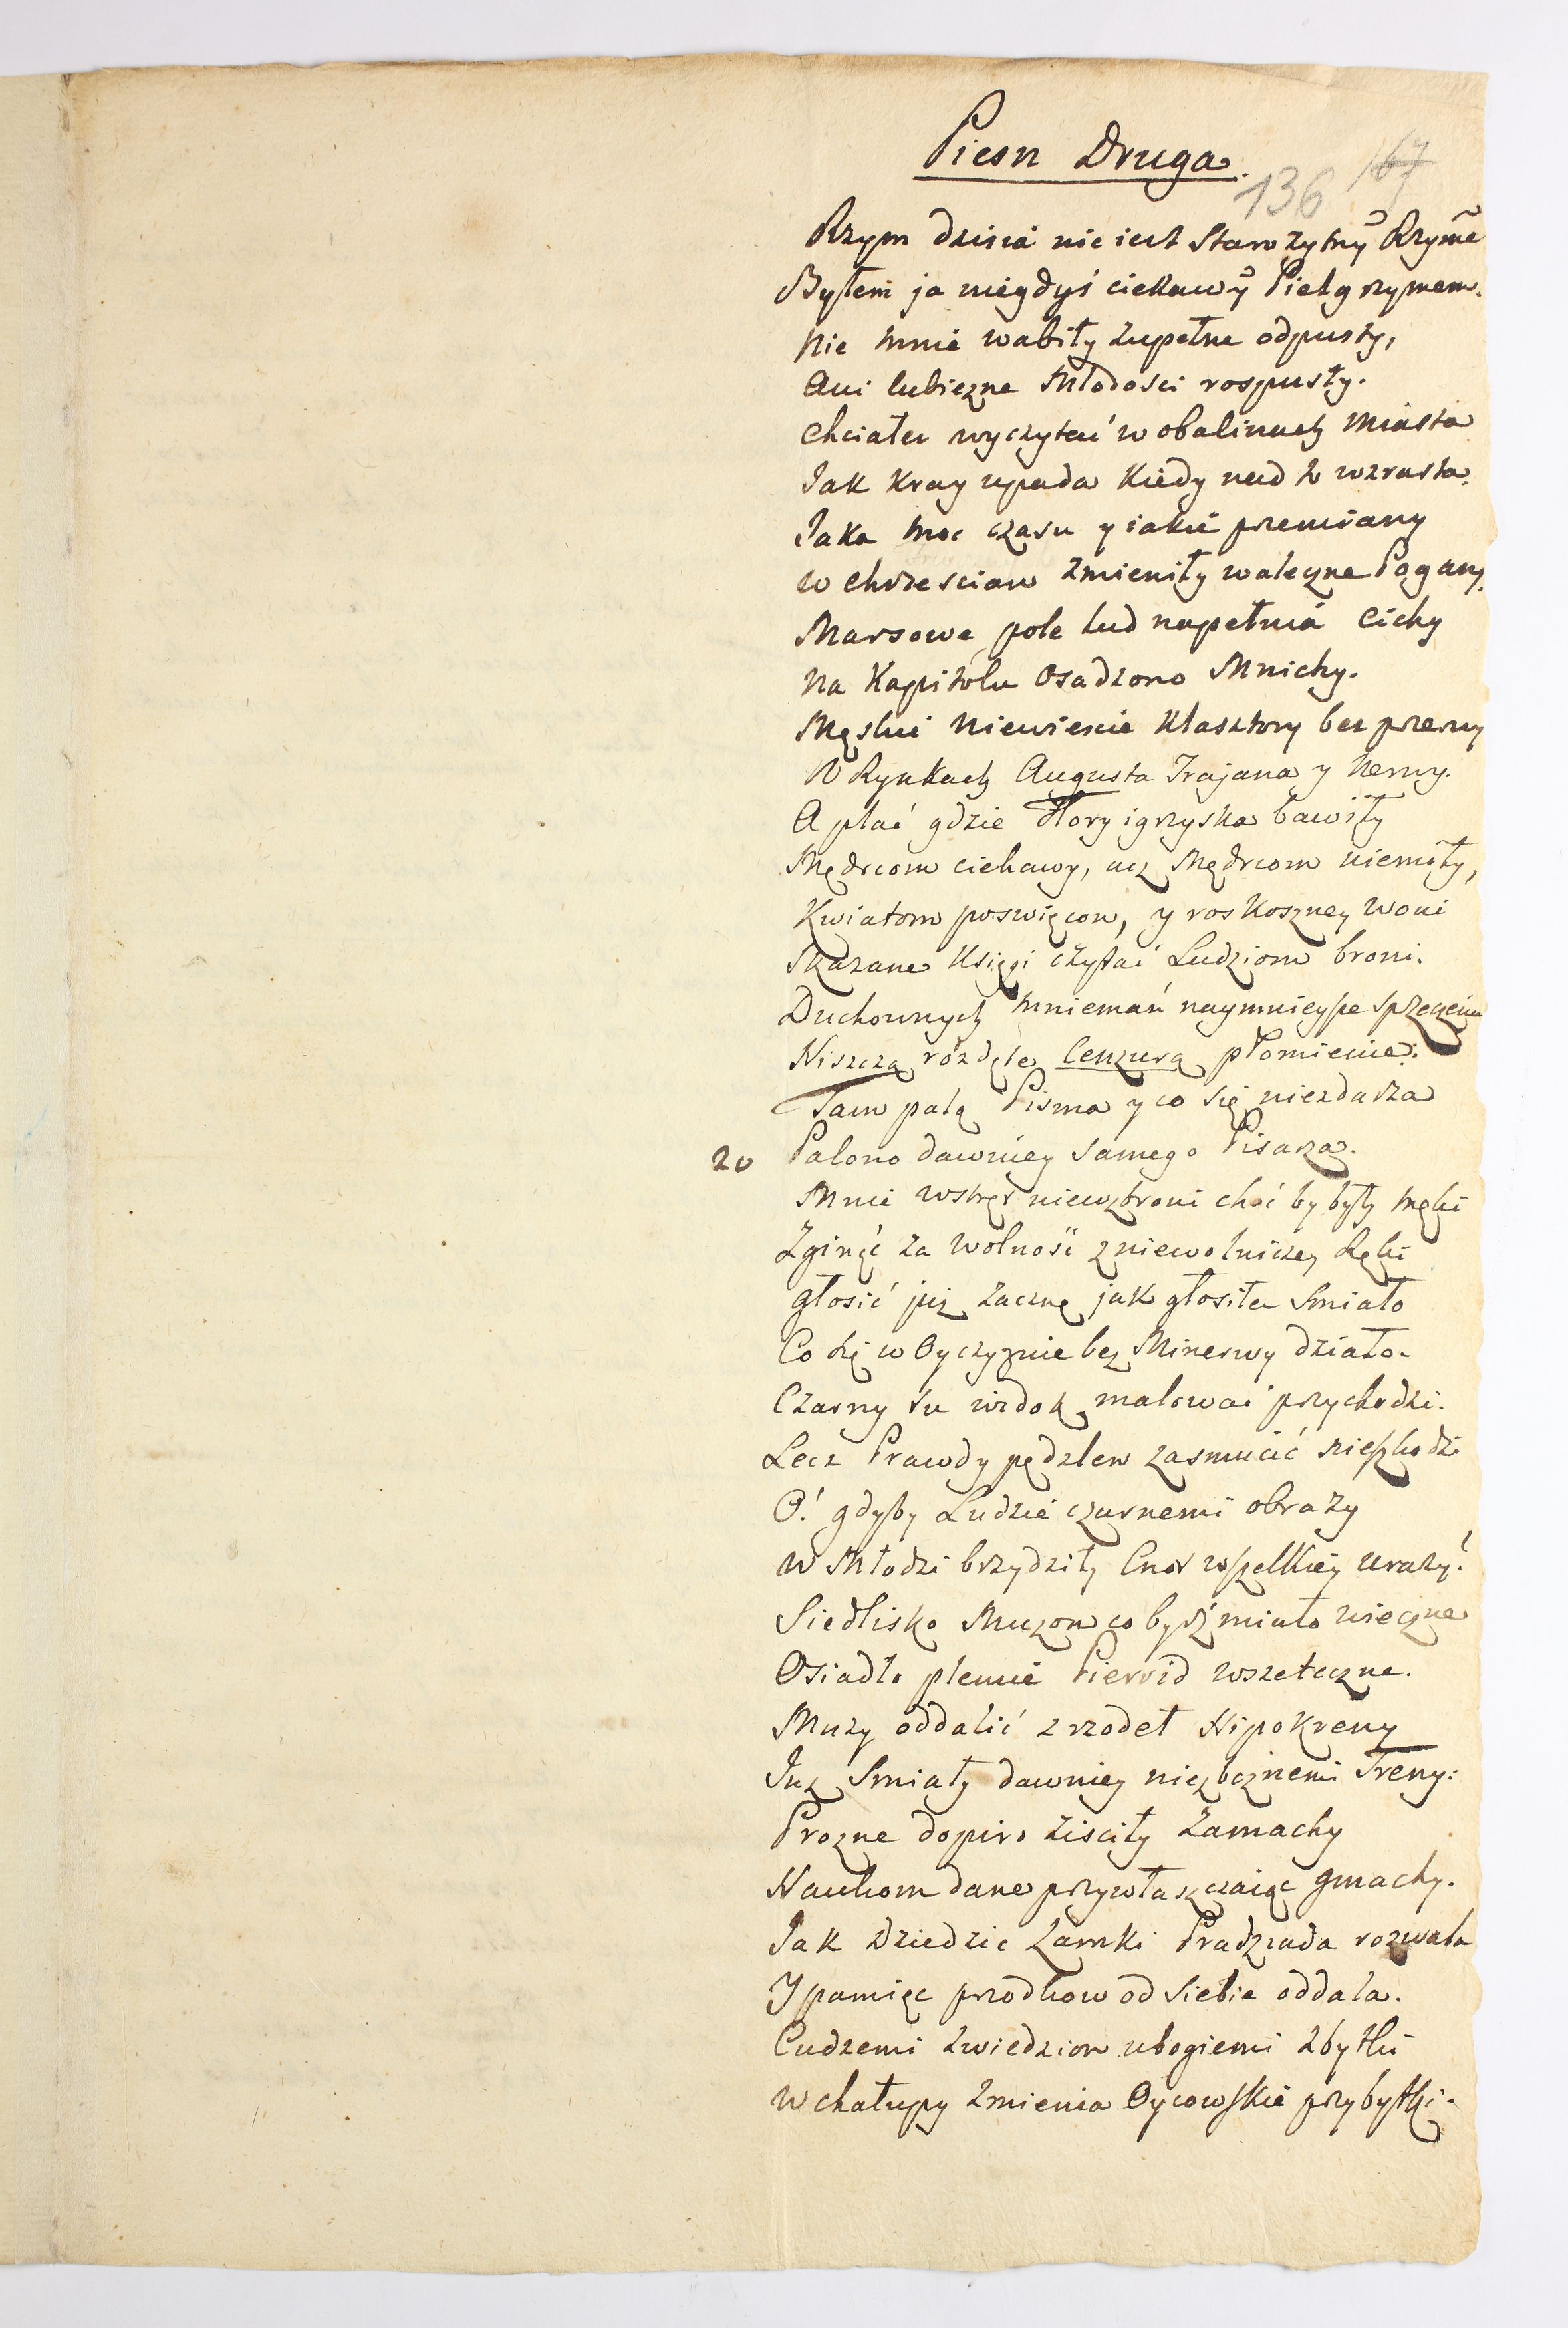 Piesn Druga.
136 167
Rzym dzisiá nie iest Starozytny̅ Rzyme̅
Byłem ja niegdyś ciekawy̅ Pielgrzymem.
Nie mnie wabiły zupełne odpusty,
Ani lubiezne Młodosci rospusty.
Chciałem wyczytać w obalinach Miasta
Jak Kray upada Kiedy nad to wzrasta.
Jaka moc czasu y iakie przemiany
w Chrzescian zmieniły waleczne Pogany.
Marsowe pole lud napełniá Cichy
Na Kapitolu Osadzono Mnichy.
Męskie Niewiescie Klasztory bez przerwy
W Rynkach Augusta Trajana y Nerwy.
A plać gdzie Flory igrzyska bawiły
Mędrcom ciekawy, acz Mędrcom niemiły,
Kwiatom poswięcon, y roskoszney woni
Skazane Księgi czytać Ludziom broni.
Duchownych mniemań naymnieysze sprzeczen
Niszczą rozdęte Cenzurą płomienie:
Tam palą Pisma y co się niezdarza
20 Palono dawniey samego Pisarza.
Mnie wstręt niewzbroni choć by były męki
Zginąć za wolność z niewolniczey Ręki
głosić już zacznę jak głosiłem Smiało
Co się w Oyczyznie bez Minerwy działo.
Czarny tu widok malować przychodzi.
Lecz Prawdy pędzlem zasmucić nieszkodzi
O! gdyby Ludzie czarnemi obrazy
W Młodzi brzydziły Cnot wszelkiey urazy!
Siedlisko Muzom co bydź miało wieczne
Osiadło plemie Pierrid wszeteczne.
Muzy oddalić z rzodeł Hipokreny
Już Smiały dawniey niezbożnemi Treny:
Prozne dopiro zisciły Zamachy
Naukom dane przywłaszczaiąc gmachy.
Jak Dziedzic Zamki Pradziada rozwala
Y pamięc przodkow od siebie oddala.
Cudzemi zwiedzion ubogiemi zbytki
W chałupy zmienia Oycowskie przybytki.